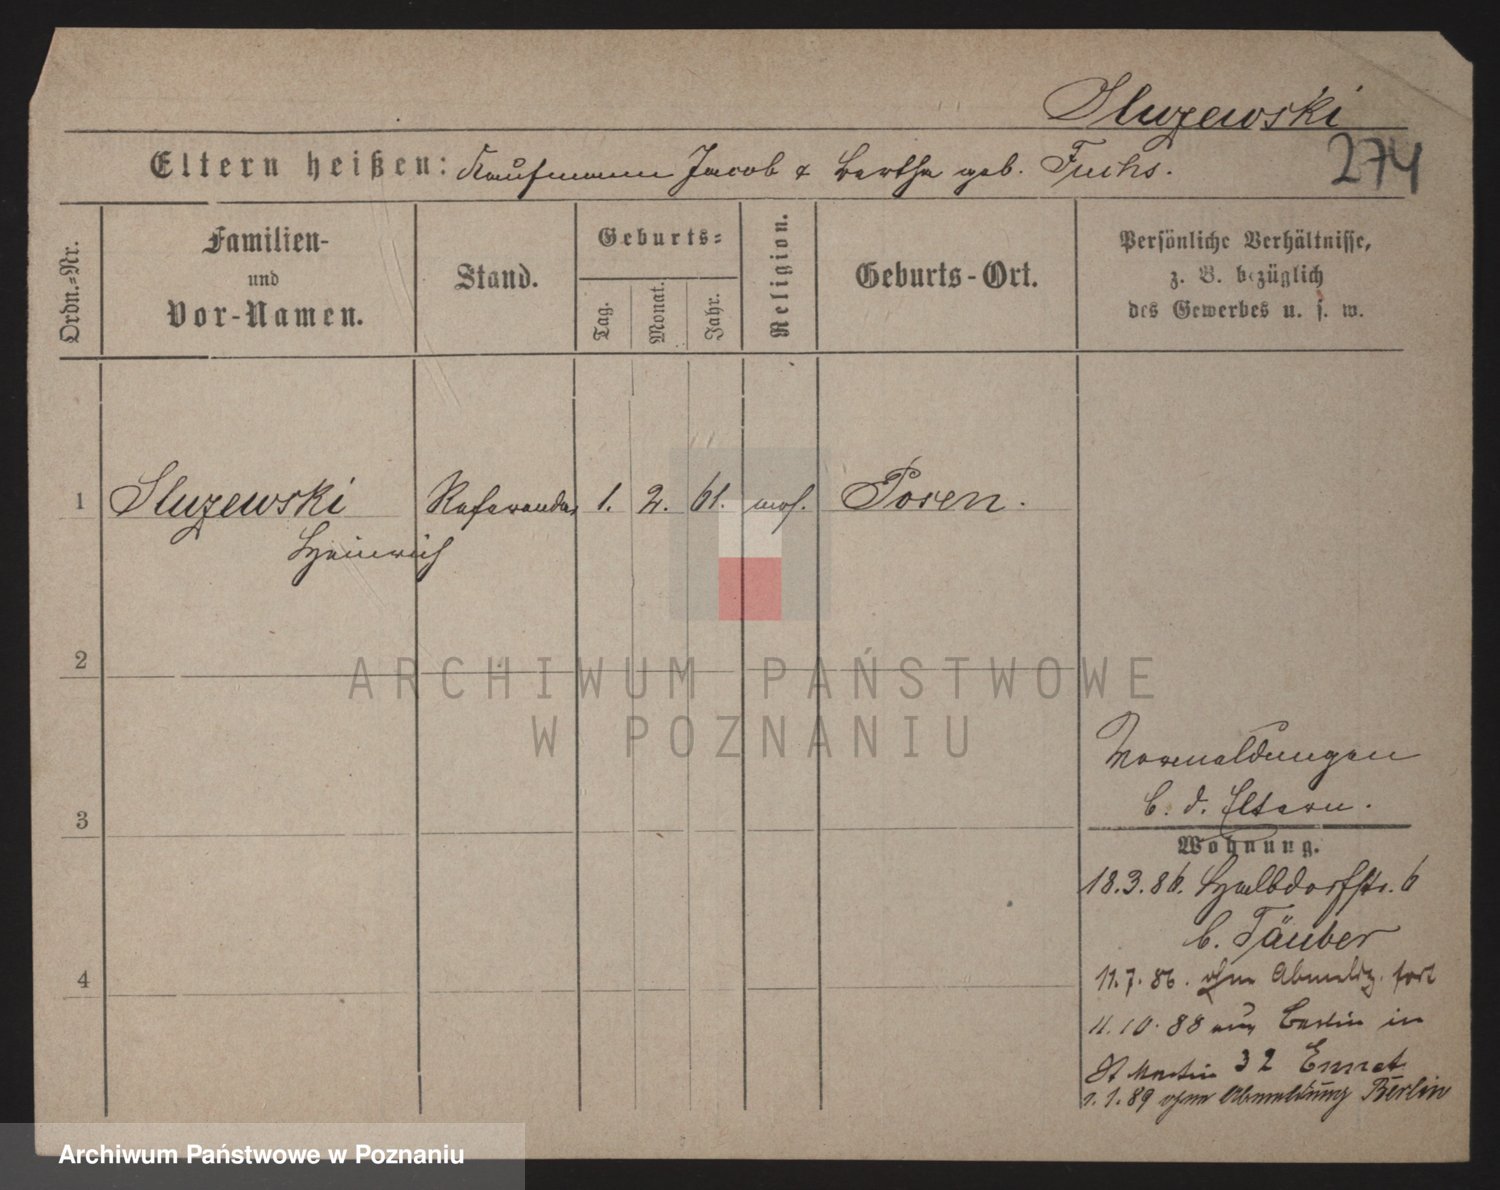 Sluzewski
274
Eltern heißen: Kaufmann Jacob & Bertha geb. Fuchs.
Ordn.-Nr.
Familien-
und
Vor-Namen.
Stand.
Geburts-
Tag.
Monat.
Jahr.
Religion.
Geburts-Ort.
Persönliche Verhältnisse,
z. B. bezüglich
des Gewerbes u. s. w.
1 Sluzewski Referendar 1. 2. 61. mos. Posen.
Heinrich
2
3
4
Vormeldungen
b. d. Eltern.
Wohnung.
18.3.86. Halbdorfstr. 6
b. Täuber
11.7.86. ohne Abmeldg. fort
11.10.88 aus Berlin in
St Martin 32
1.89 ohne Abmeldung Berlin
ARCHIWUM PAŃSTWOWE
W POZNANIU
Archiwum Państwowe w Poznaniu